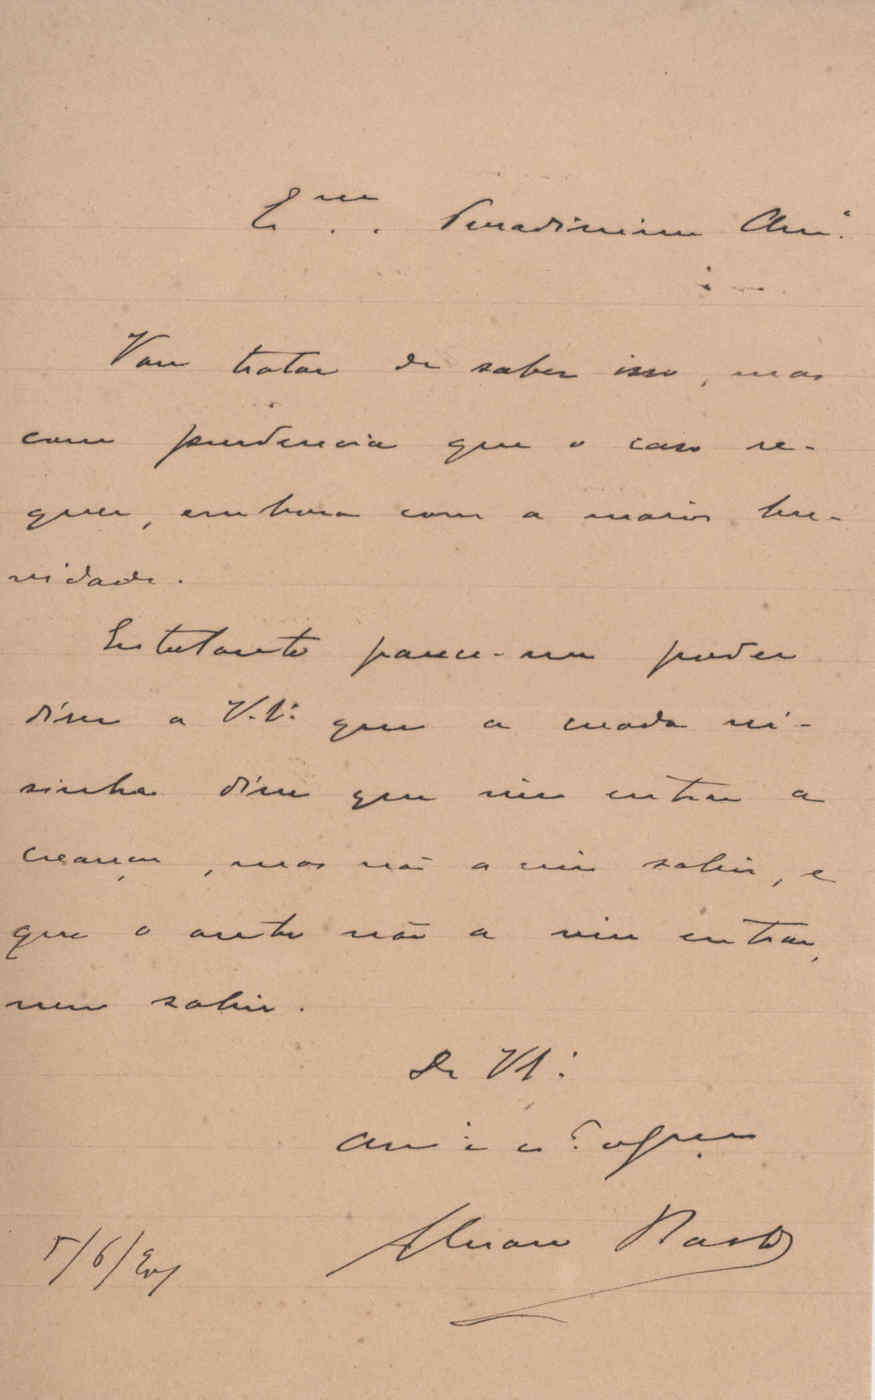 E^mo. Presadissimo Am.º
Vou tratar de saber isso, mas
com prudencia que o caso re-
quer, embora com a maior bre-
vidade.
Entretanto parece-me poder
diser a V. S.ª que a creada vi-
sinha disse que viu entrar a
creança, mas não a viu sahir, e
que o outro não a viu entrar,
nem sahir.
De V. S.ª
Am.º e
Alvaro
5/6/